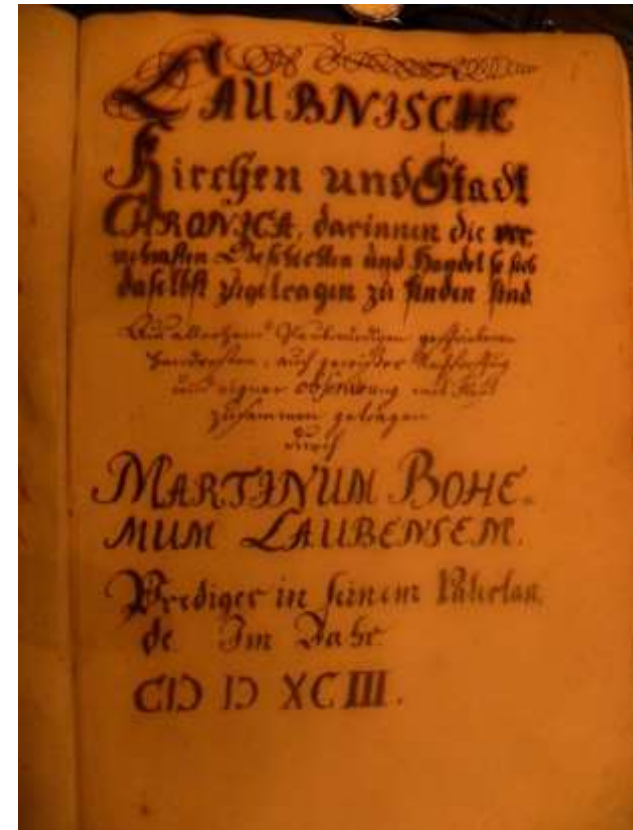 LAUBNISCHE
Kirchen und Stadt
CHRONICA, darinnen die vor
nehmsten Geschichten und Handel so sich
daselbst zugetragen zu finden sind
Aus allerhand Glaubwürdigen geschriebenen
auch gewisser
und eigner observirung mit
zusammen getragen
durch
MARTINUM BOHE-
MUM LAUBENSEM.
Prediger in seinem Vaterlan
de. Im Jahr
CIↃ IↃ XCIII.